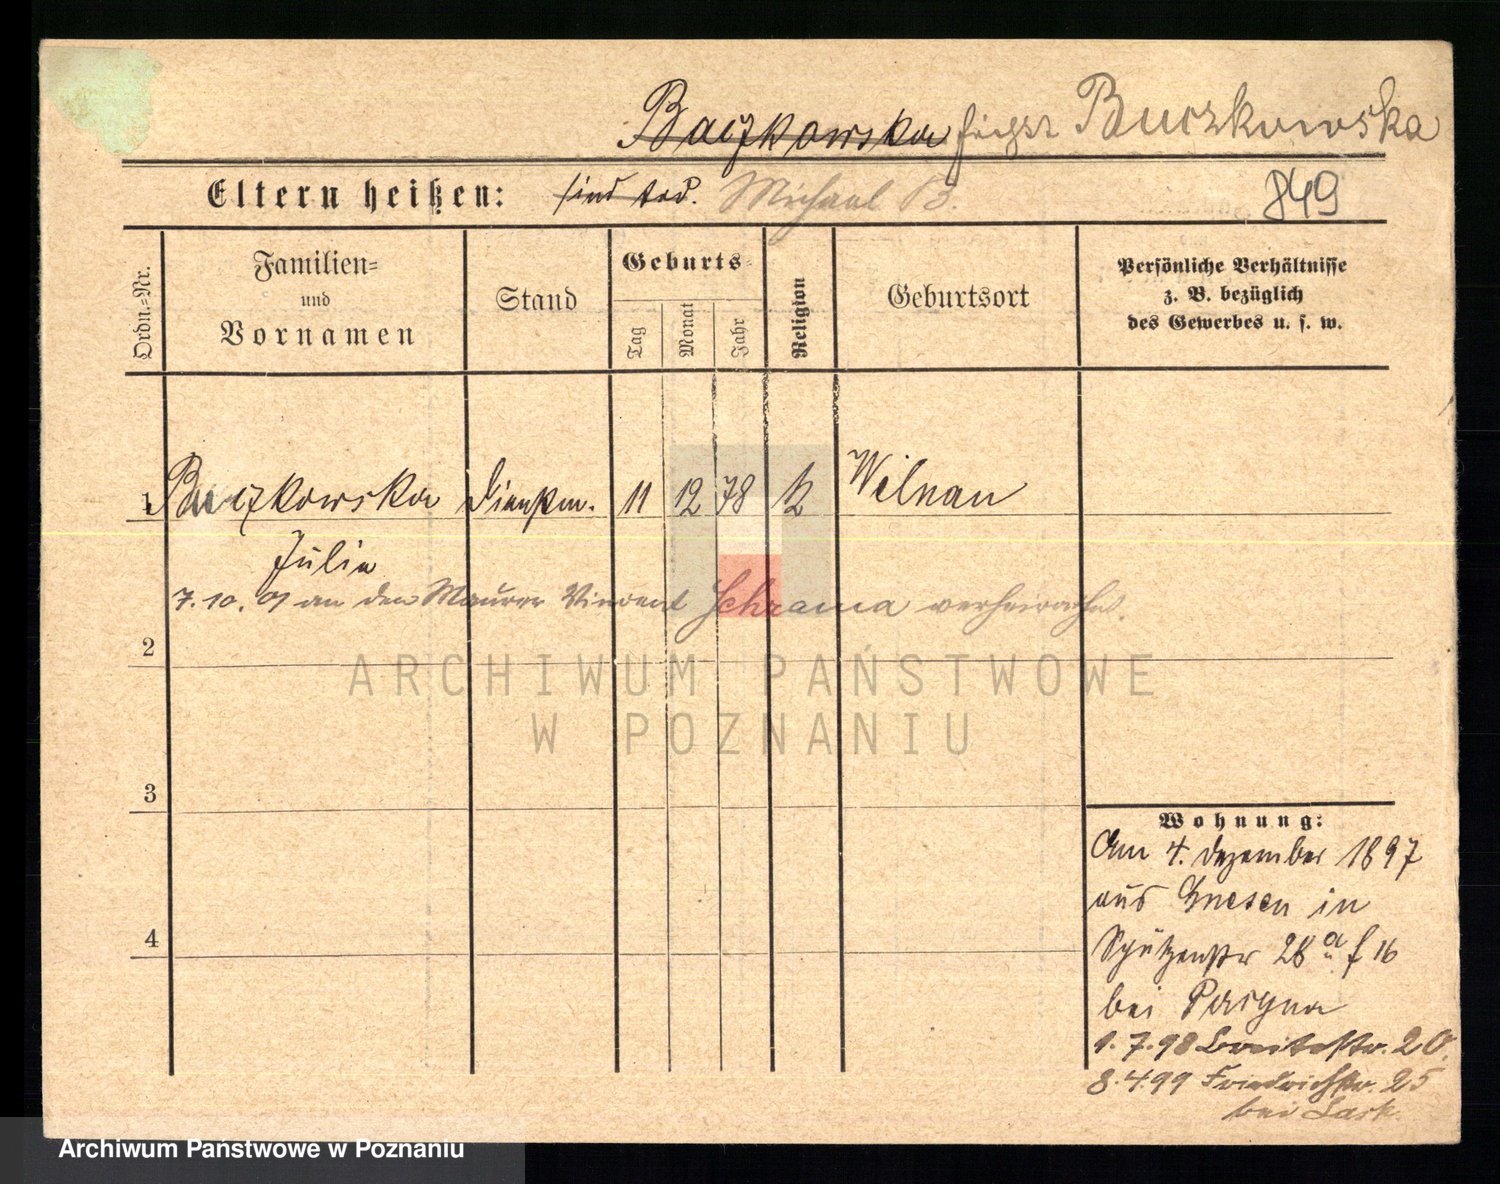 Baczkowska heißt Buczkowska
Eltern heißen: sind tod. Michael B. 849
Ordn.-Nr.
Familien-
und
Vornamen
Stand
Geburts-
Tag
Monat
Jahr
Religion
Geburtsort
Persönliche Verhältnisse
z. B. bezüglich
des Gewerbes u. s. w.
1 Buczkowska Dienstm. 11 12 78 k Wilnau
Julia
7.10.01 an den Maurer Vincent Schrama verheirathet.
2
ARCHIWUM PAŃSTWOWE
W POZNANIU
3
4
Wohnung:
Am 4. Dezember 1897
aus Gnesen in
Schützenstr 28 a
bei
1.7.98 Breitestr. 20.
8.4.99 Friedrichstr. 25
bei Lask.
Archiwum Państwowe w Poznaniu